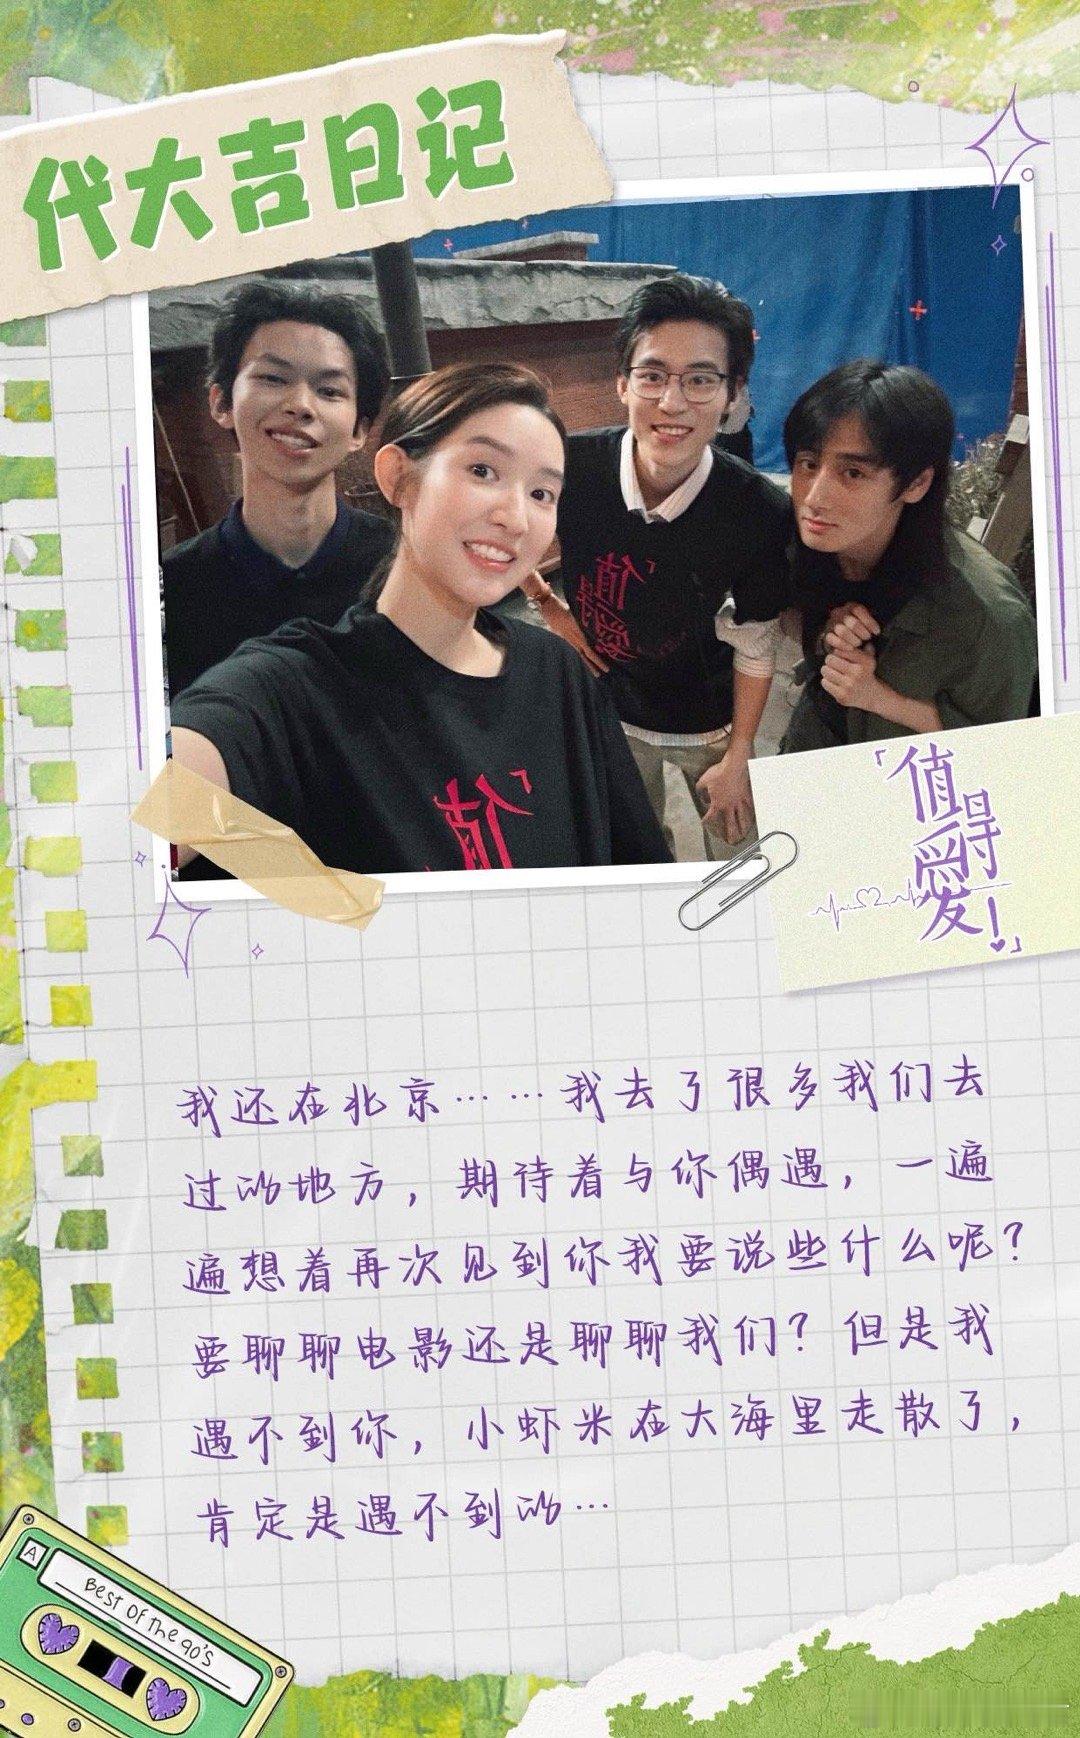 代大吉日记
「值得
爱!」
「值得爱
「值
我还在北京……我去了很多我们去
过的地方，期待着与你偶遇，一遍
遍想着再次见到你我要说些什么呢？
要聊聊电影还是聊聊我们？但是我
遇不到你，小虾米在大海里走散了，
肯定是遇不到的…
A
Best Of The 90's